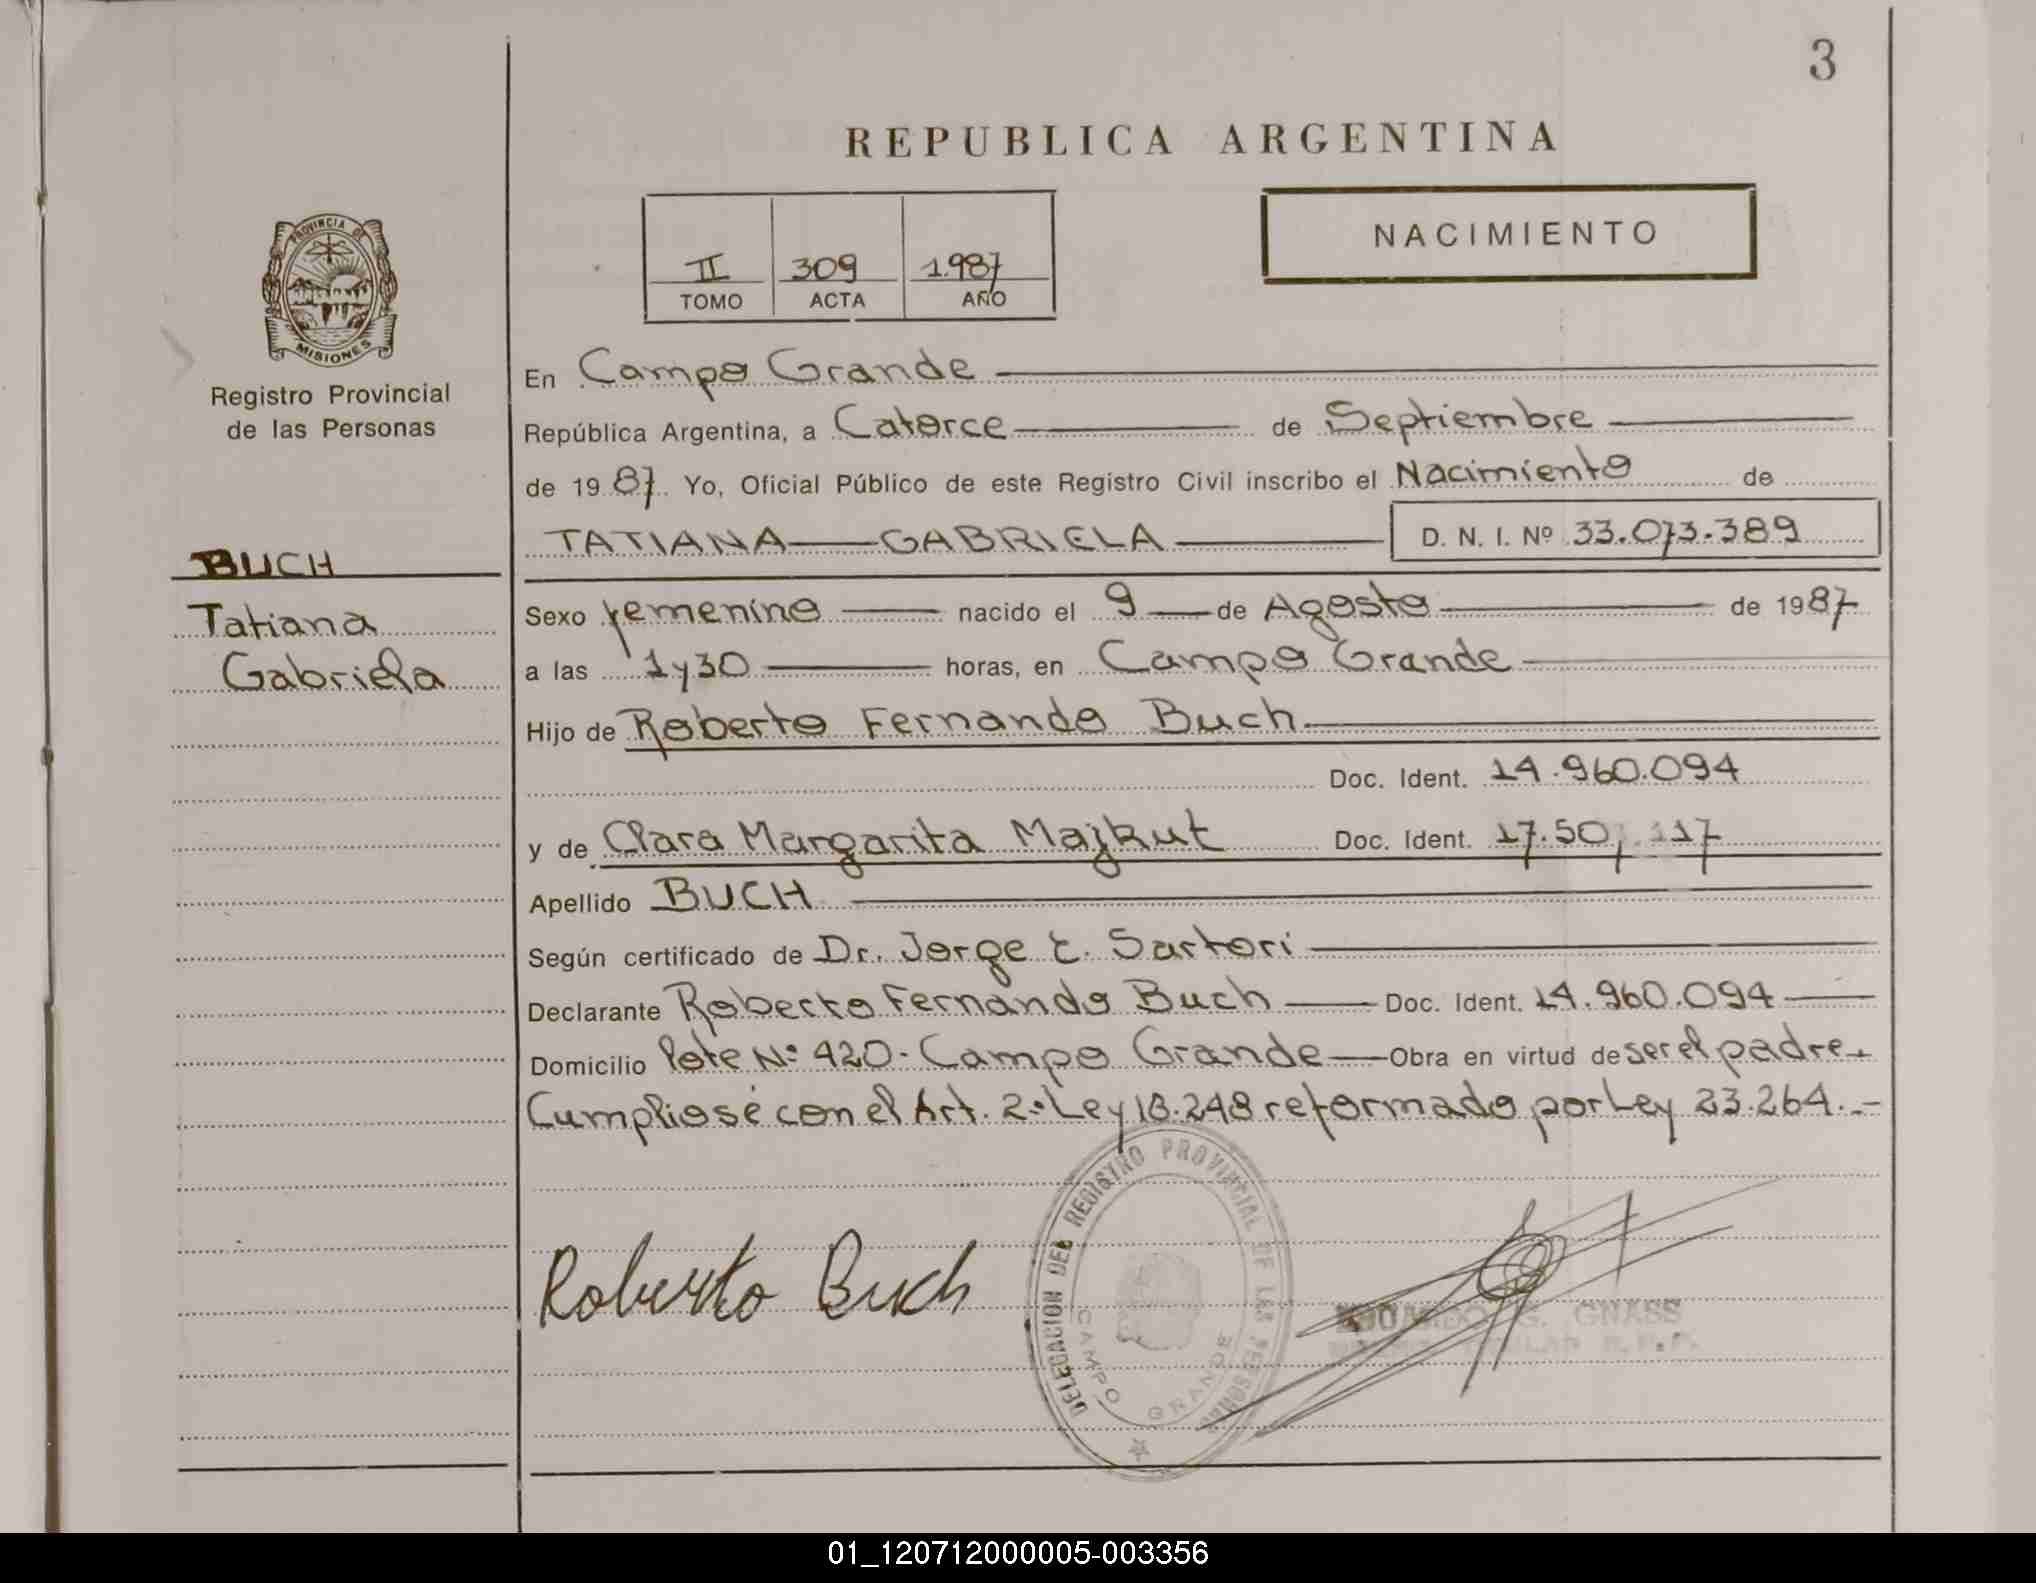 3
REPUBLICA ARGENTINA
II 309 1.987
TOMO ACTA AÑO
NACIMIENTO
PROVINCIA DE
MISIONES
Registro Provincial
de las Personas
BUCH
Tatiana
Gabriela
En Campo Grande
República Argentina, a Catorce de Septiembre
de 1987. Yo, Oficial Público de este Registro Civil inscribo el Nacimiento de
TATIANA GABRIELA D. N. I. Nº 33.073.389
Sexo femenino nacido el 9 de Agosto de 1987
a las 1 y 30 horas, en Campo Grande
Hijo de Roberto Fernando Buch
Doc. Ident. 14.960.094
y de Clara Margarita Majkut Doc. Ident. 17.507.117
Apellido BUCH
Según certificado de Dr. Jorge E. Sartori
Declarante Roberto Fernando Buch Doc. Ident. 14.960.094
Domicilio lote Nº 420 - Campo Grande Obra en virtud de ser el padre.
Cumpliose con el Art. 2º Ley 18.248 reformado por Ley 23.264.-
Roberto Buch
DELEGACION DEL REGISTRO PROVINCIAL DE LAS PERSONAS
CAMPO GRANDE
G. GNASS
01_120712000005-003356